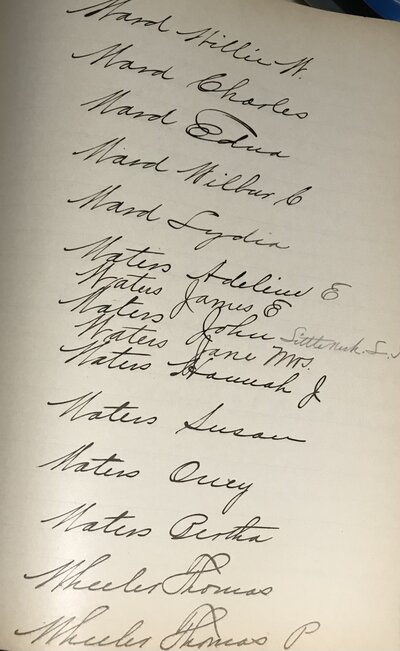 Ward Willie W.
Ward Charles
Ward Edna
Ward Wilbur C
Ward Lydia
Waters Adeline E
Waters James E
Waters John Little Neck. L. I
Waters Jane Mrs.
Waters Hannah J
Waters Susan
Waters
Waters Bertha
Wheeler Thomas
Wheeler Thomas P